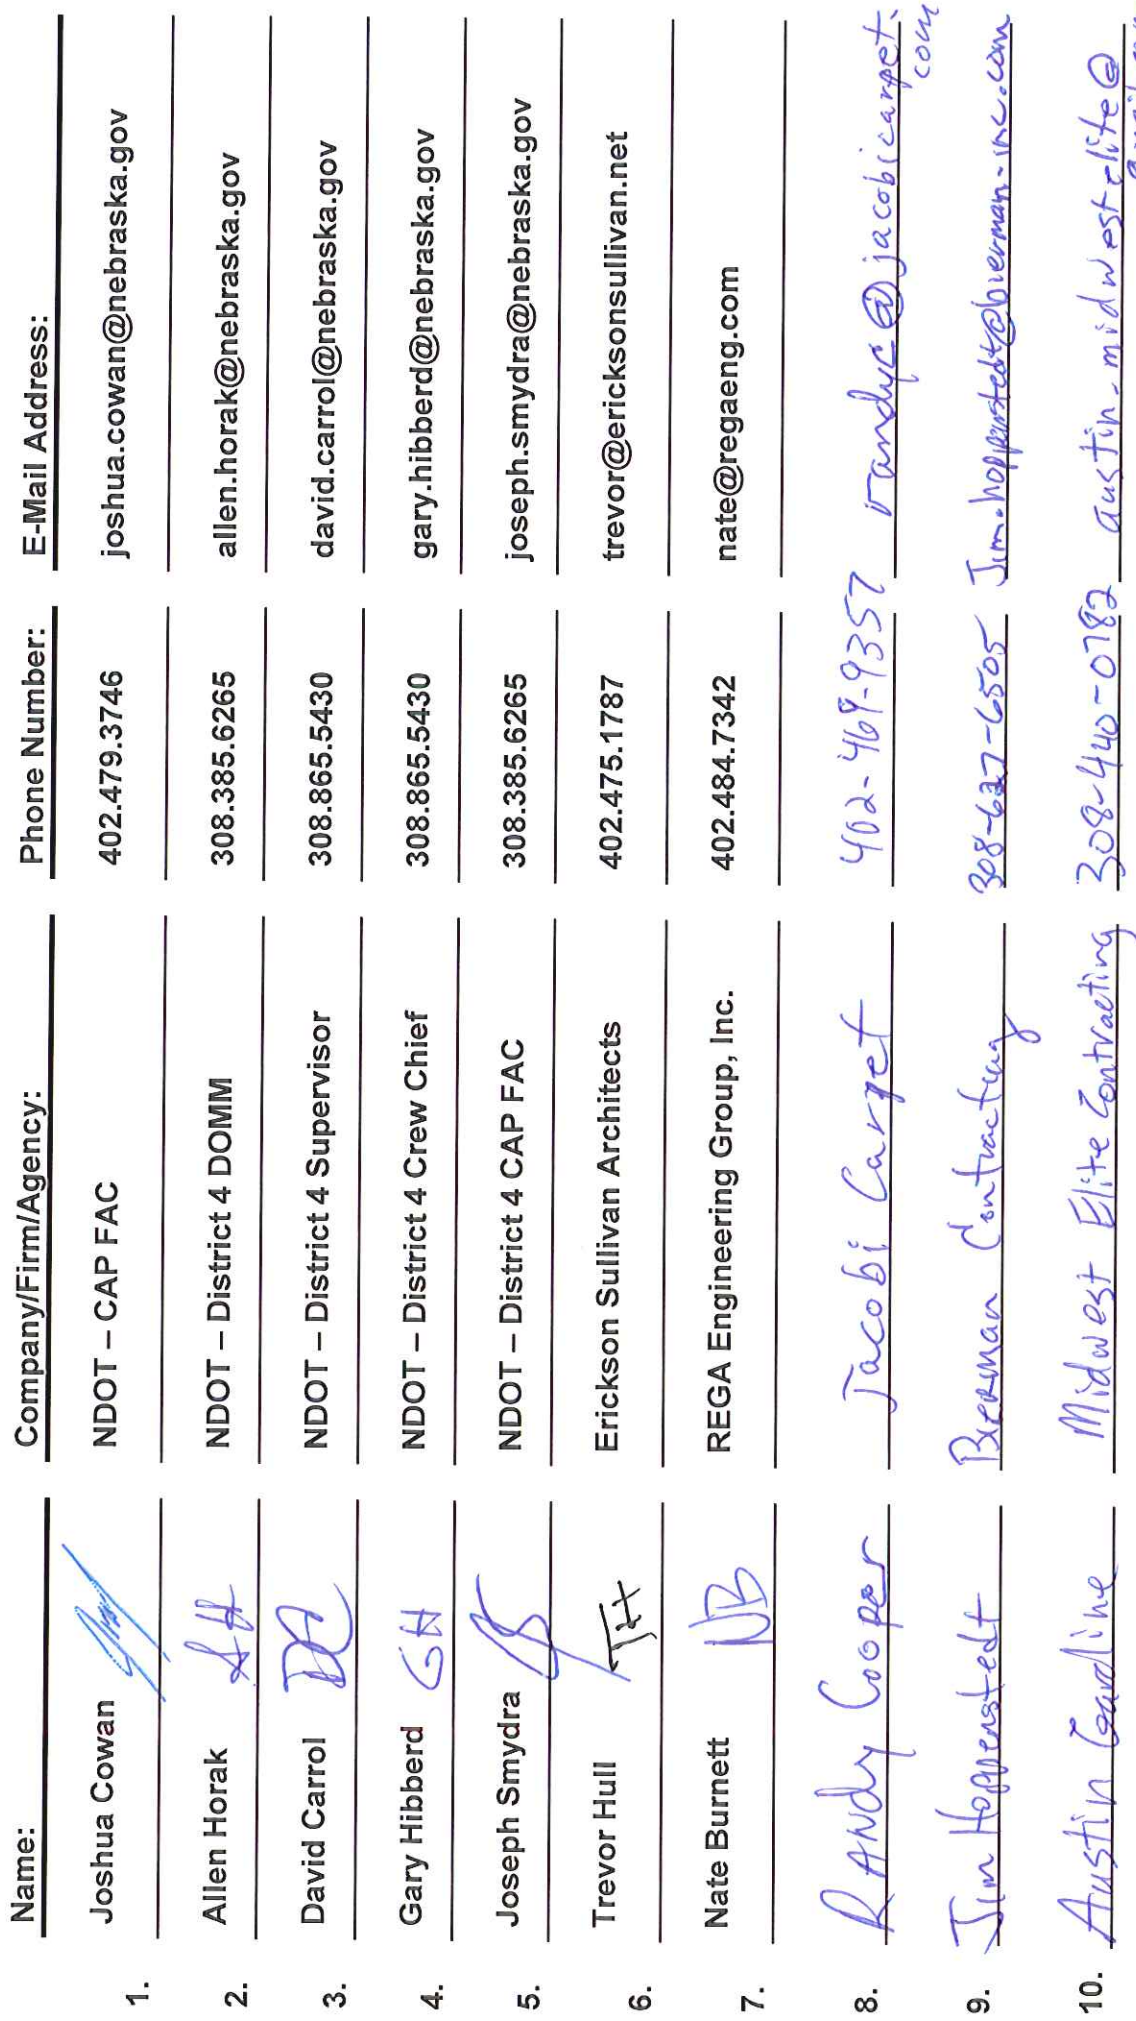 Name: Company/Firm/Agency: Phone Number: E-Mail Address:
1. Joshua Cowan NDOT – CAP FAC 402.479.3746 joshua.cowan@nebraska.gov
2. Allen Horak AH NDOT – District 4 DOMM 308.385.6265 allen.horak@nebraska.gov
3. David Carrol DC NDOT – District 4 Supervisor 308.865.5430 david.carrol@nebraska.gov
4. Gary Hibberd GH NDOT – District 4 Crew Chief 308.865.5430 gary.hibberd@nebraska.gov
5. Joseph Smydra JS NDOT – District 4 CAP FAC 308.385.6265 joseph.smydra@nebraska.gov
6. Trevor Hull Erickson Sullivan Architects 402.475.1787 trevor@ericksonsullivan.net
7. Nate Burnett NB REGA Engineering Group, Inc. 402.484.7342 nate@regaeng.com
8. RANdy Cooper Jacobi Carpet 402-469-9357 randyc@jacobicarpet.
com
9. Jim Hoppenstedt Bierman Contracting 308-627-6505 Jim.hoppenstedt@bierman-inc.com
10. Austin Midwest Elite Contracting 308-440-0782 austin.midwestelite@